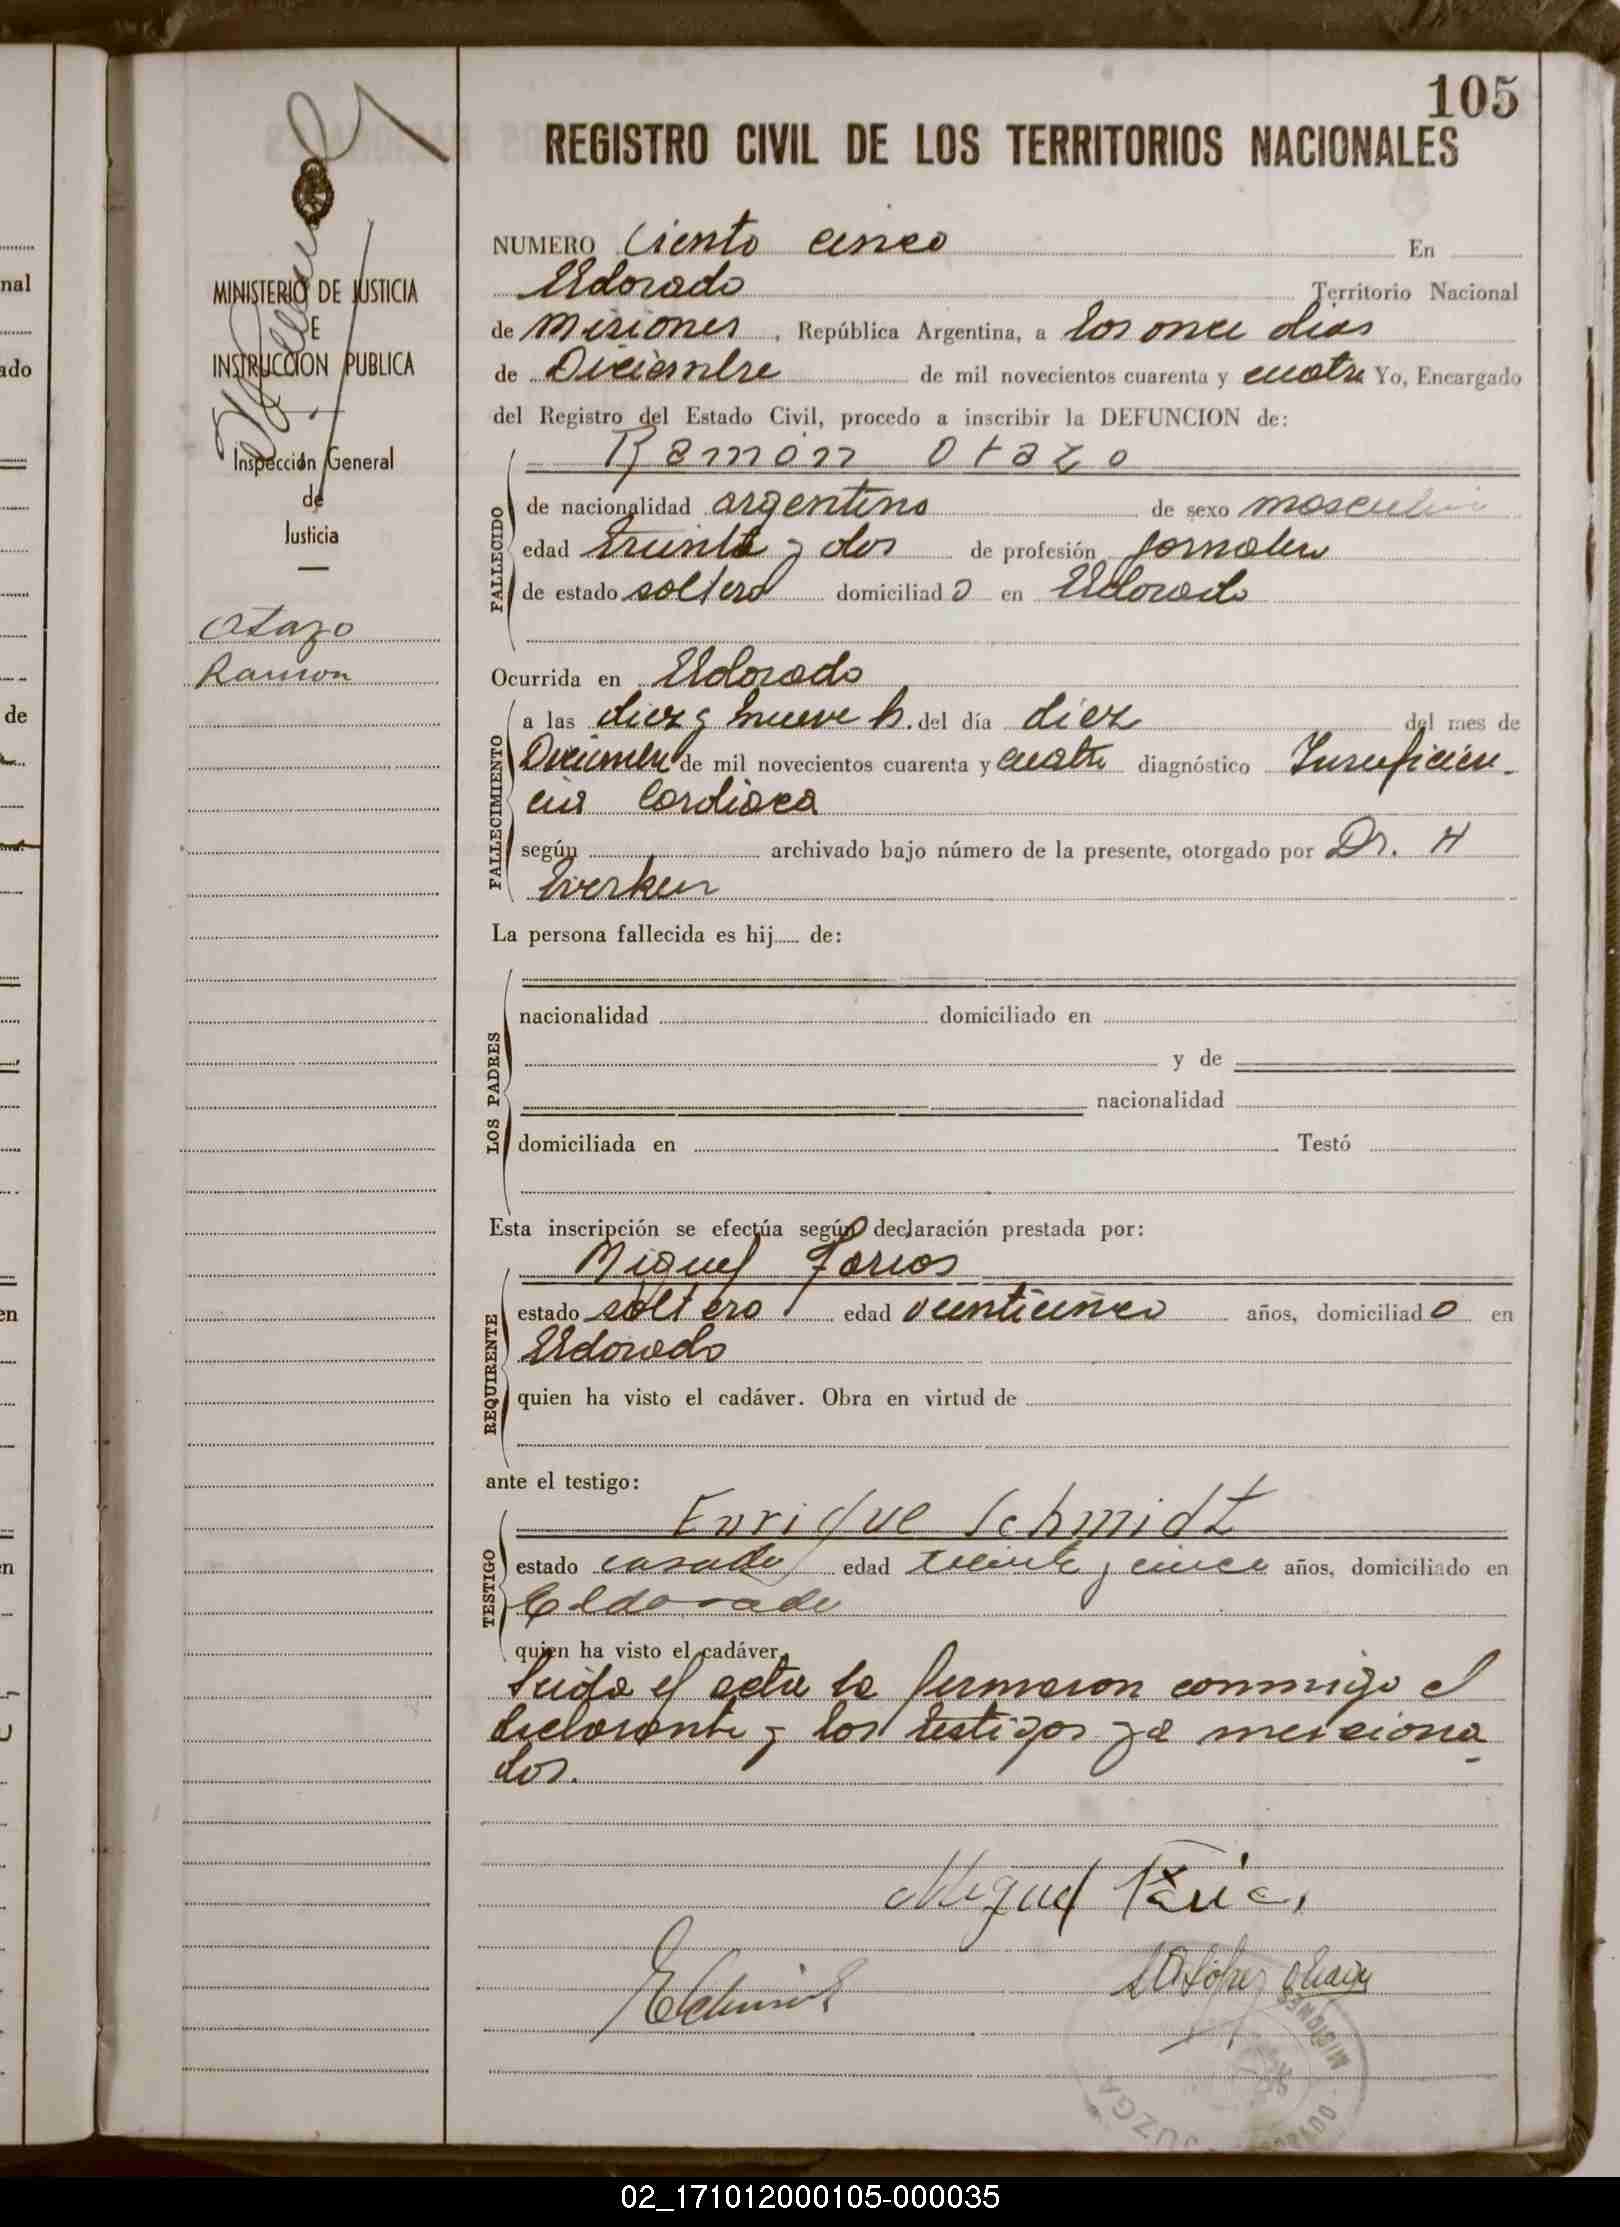 105
REGISTRO CIVIL DE LOS TERRITORIOS NACIONALES
MINISTERIO DE JUSTICIA
DE
INSTRUCCION PUBLICA
Inspección General
de
Justicia
Otazo
Ramon
NUMERO Ciento cinco En
Eldorado Territorio Nacional
de Misiones, República Argentina, a los once dias
de Diciembre de mil novecientos cuarenta y cuatro Yo, Encargado
del Registro del Estado Civil, procedo a inscribir la DEFUNCION de:
Ramón Otazo
FALLECIDO
de nacionalidad argentino de sexo masculino
edad treinta y dos de profesión jornalero
de estado soltero domiciliado en Eldorado
Ocurrida en Eldorado
FALLECIMIENTO
a las diez y nueve h. del día diez del mes de
Diciembre de mil novecientos cuarenta y cuatro diagnóstico Insuficien-
cia Cardiaca
según archivado bajo número de la presente, otorgado por Dr. H
La persona fallecida es hij de:
LOS PADRES
nacionalidad domiciliado en
y de
nacionalidad
domiciliada en Testó
Esta inscripción se efectúa según declaración prestada por:
Miguel Farias
REQUIRENTE
estado soltero edad veinticinco años, domiciliado en
Eldorado
quien ha visto el cadáver. Obra en virtud de
ante el testigo:
Enrique Schmidt
TESTIGO
estado casado edad treinta y cinco años, domiciliado en
Eldorado
quien ha visto el cadáver.
Leida el acta la firmaron conmigo el
declarante y los testigos ya menciona
dos.
Miguel
MISIONES
JUZGA
02_171012000105-000035